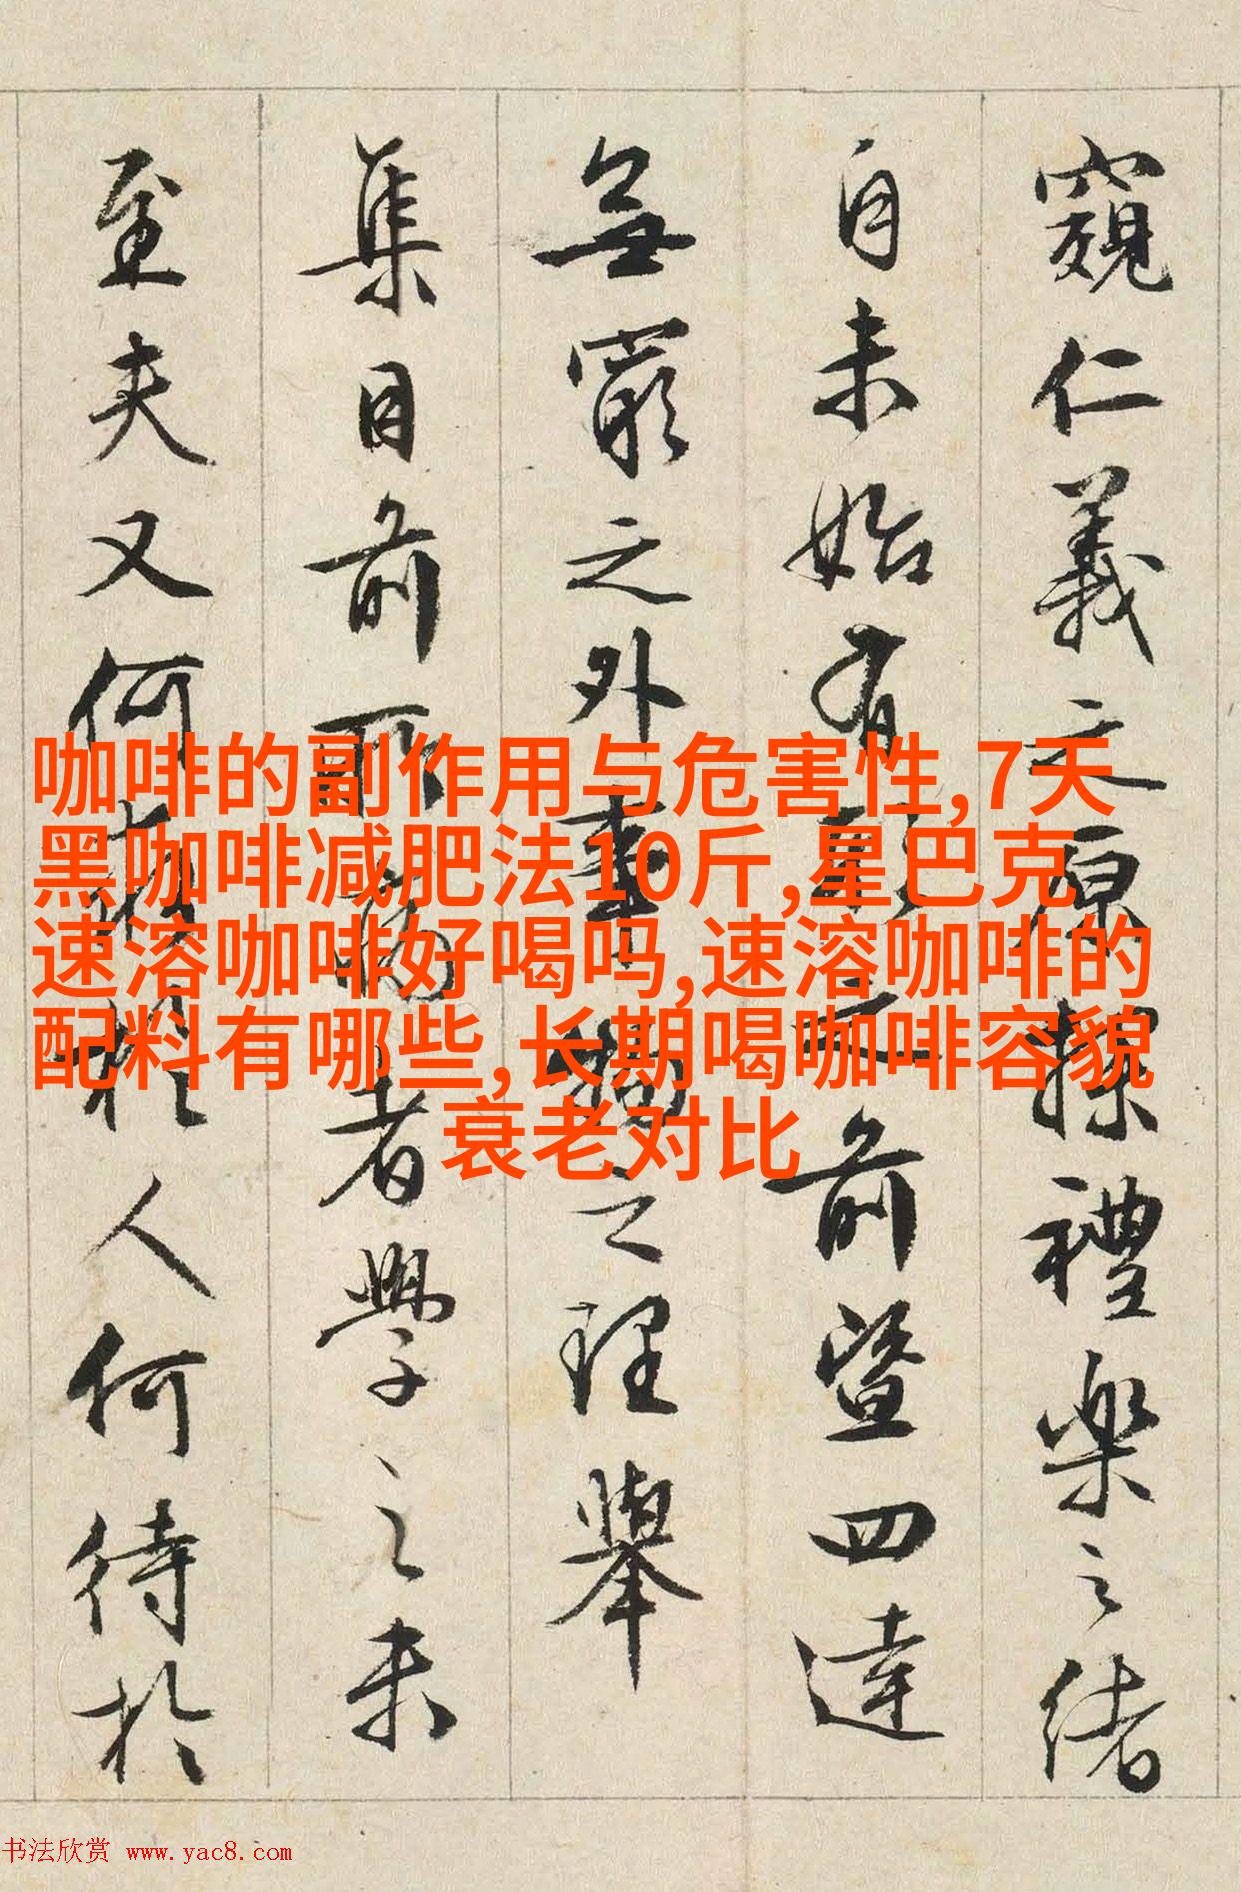 窺仁義之原探禮樂之緒
自未始有形前暨四達
無窮之外事物之理舉
集目前所病者學之未
至夫又何求於人何待於
咖啡的副作用与危害性,7天
黑咖啡减肥法10斤,星巴克
速溶咖啡好喝吗,速溶咖啡的
配料有哪些,长期喝咖啡容貌
衰老对比
书法欣赏 www.yac8.com